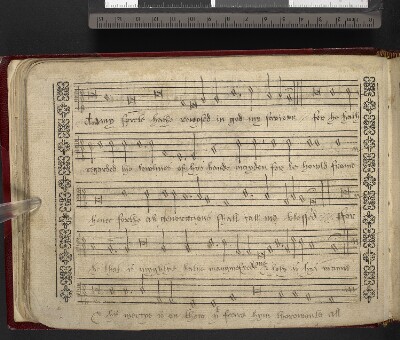 And my sprete hathe reioysed in god my saviour for he hath
regarded the lowlines of hys hande mayden for be hould frome
hence forthe all generations shall call me blessed for
he that is myghtie hathe magnyfyed me & holy is hys name
& hys mercye is on them y feare hym thorowoute all